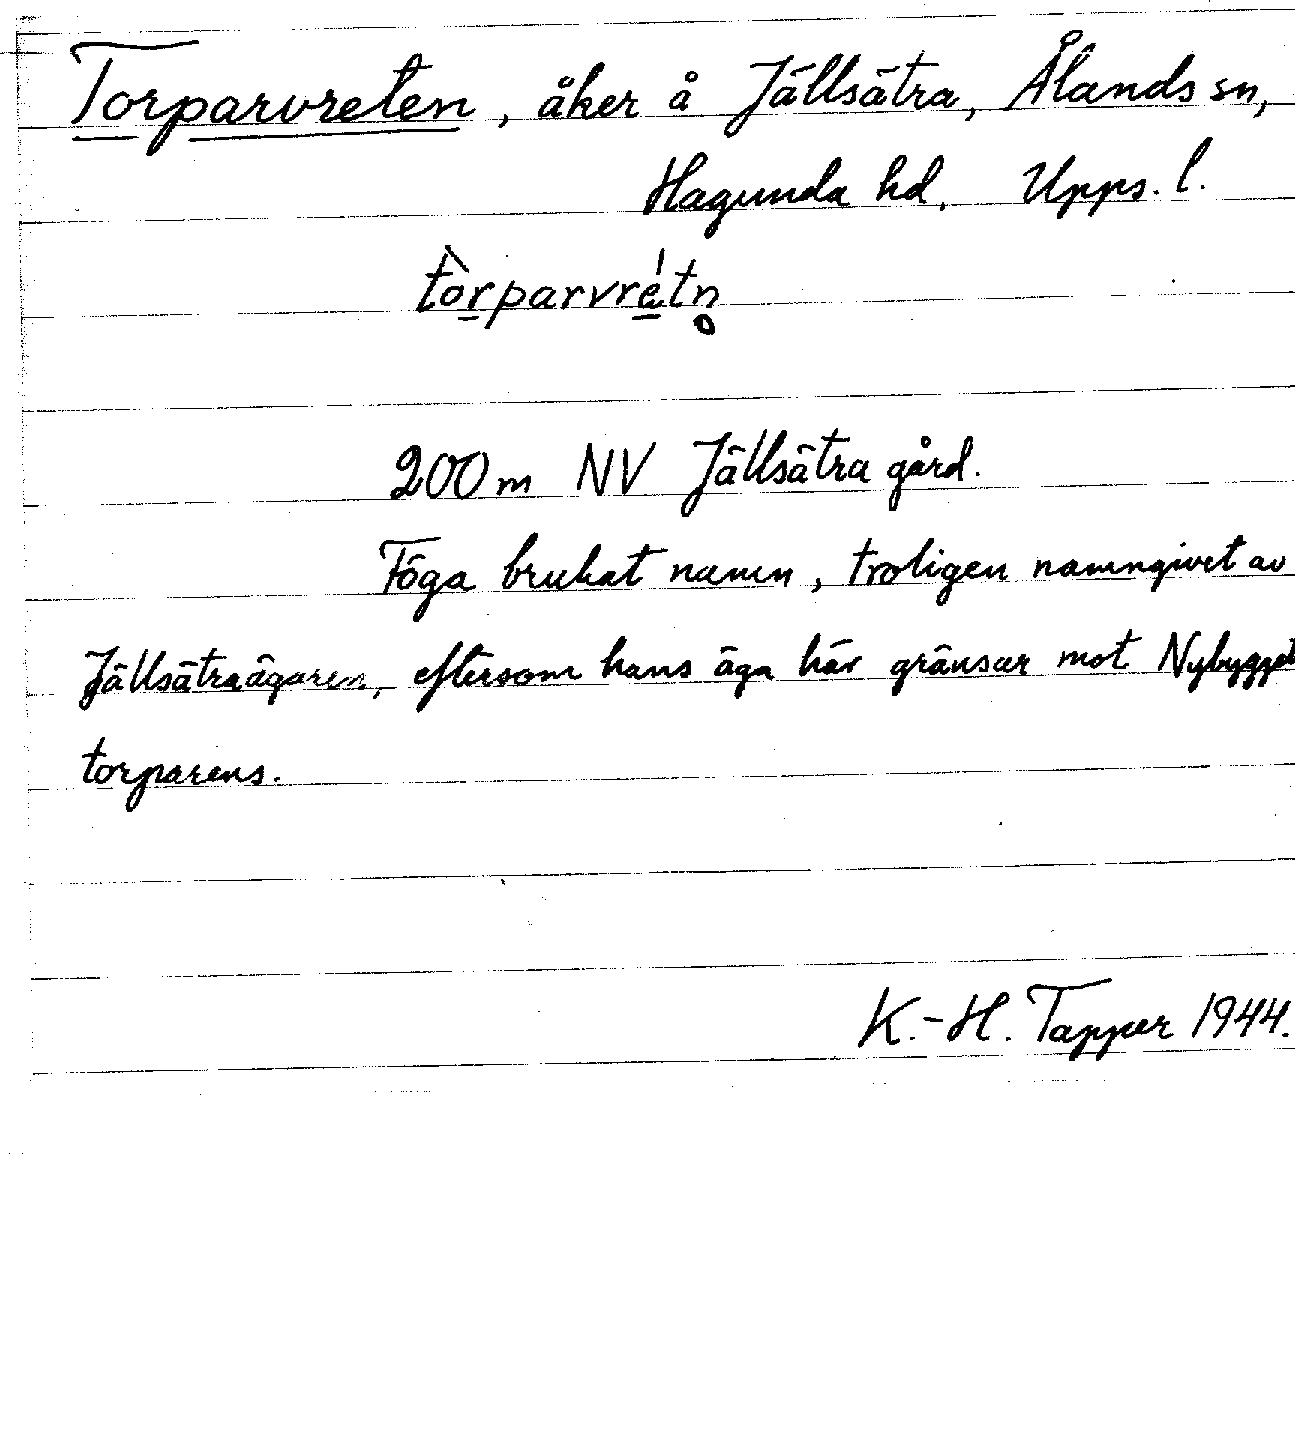 Torparvreten, åker å Jällsätra, Ålands sn,
Hagunda hd. Upps. l.
tòrparvrétn̥
200 m NV Jällsätra gård.
Föga brukat namn, troligen namngivet av
Jällsätraägaren, eftersom hans äga här gränsar mot Nybygget
torparens.
K.-H. Tapper 1944.